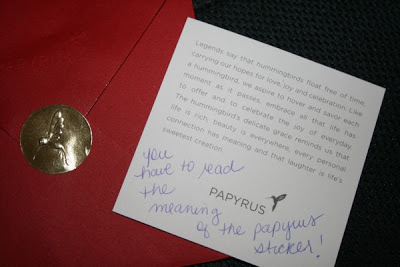 Legends say that hummingbirds float free of time,
carrying our hopes for love, joy and celebration. Like
a hummingbird, we aspire to hover and savor each
moment as it passes, embrace all that life has
to offer and to celebrate the joy of everyday.
The hummingbird's delicate grace reminds us that
life is rich, beauty is everywhere, every personal
connection has meaning and that laughter is life's
sweetest creation.
PAPYRUS
you
have to read
the
meaning
of the papyrus
sticker!